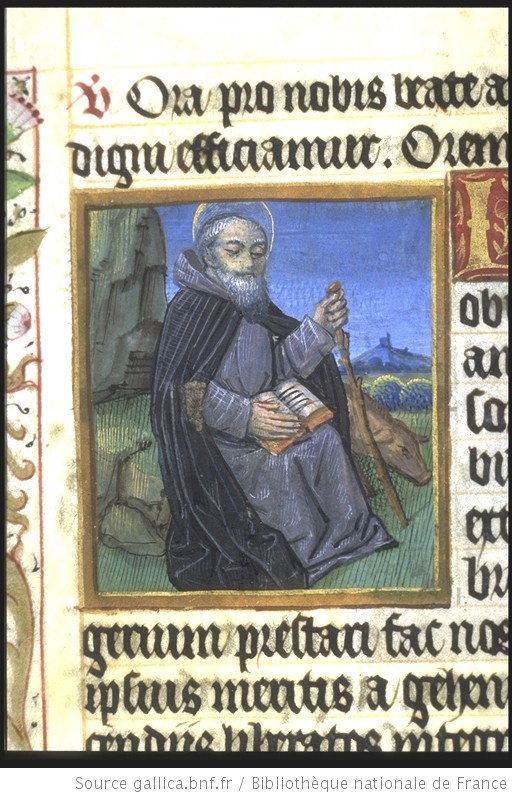 v Ora pro nobis beate a
digni efficiamur. Orem
ob
an
so
bi
ext
br
genium prestari fac nos
ipsius meritis a gehen
cendiis liberatos integr
Source gallica.bnf.fr / Bibliothèque nationale de France